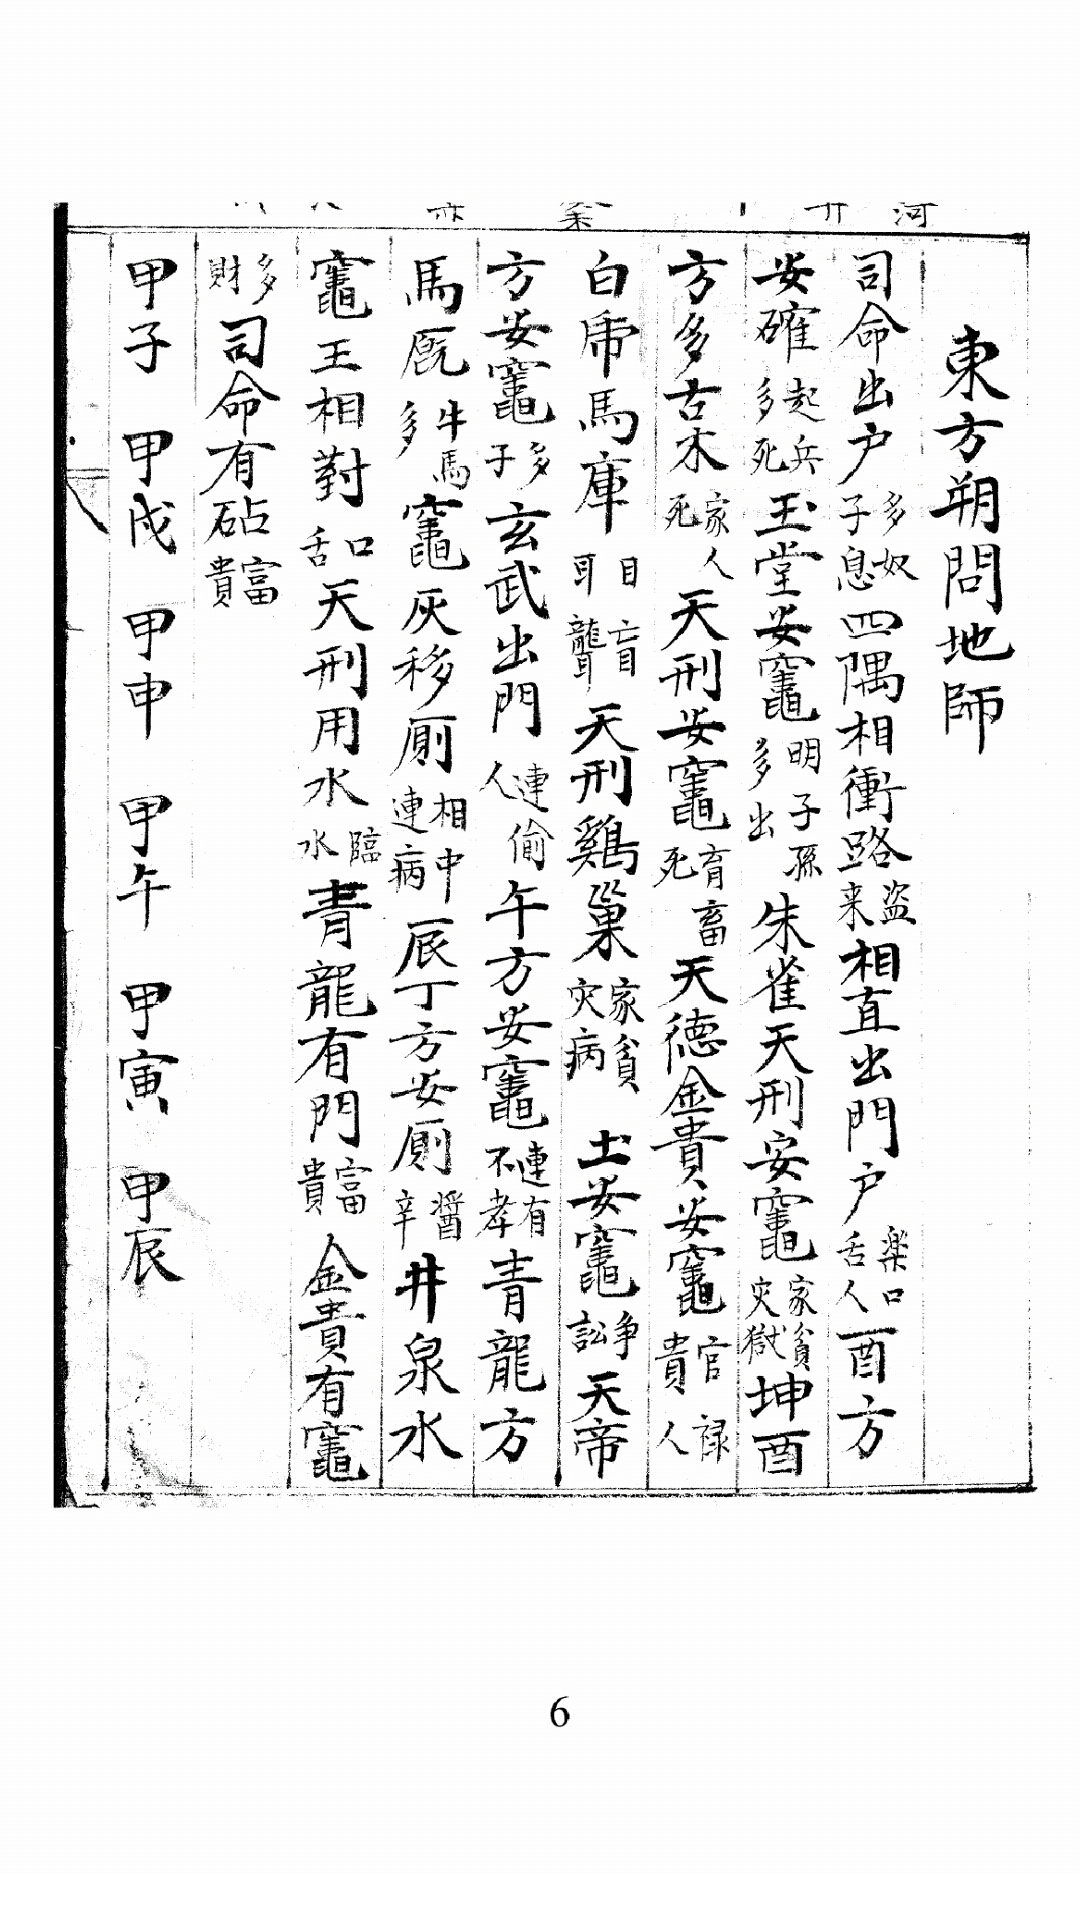 東方朔問地師
司命出户多奴子息四隅相衝路盗来相直出門户楽口舌人酉方
安確起兵多死玉堂安竈明子孫多出朱雀天刑安竈家貧灾獄坤酉
方多古木家人死天刑安竈育畜死天德金貴安竈官禄貴人
白虎馬庫目盲耳聾天刑鷄巢家貧灾病土安竈争訟天帝
方安竈多子玄武出門連偷人午方安竈連有不孝青龍方
馬厩牛馬多竈灰移厠相中連病辰丁方安厠醤辛井泉水
竈王相對口舌天刑用水臨水青龍有門富貴金貴有竈
多財司命有砧富貴
甲子 甲戌 甲申 甲午 甲寅 甲辰
6